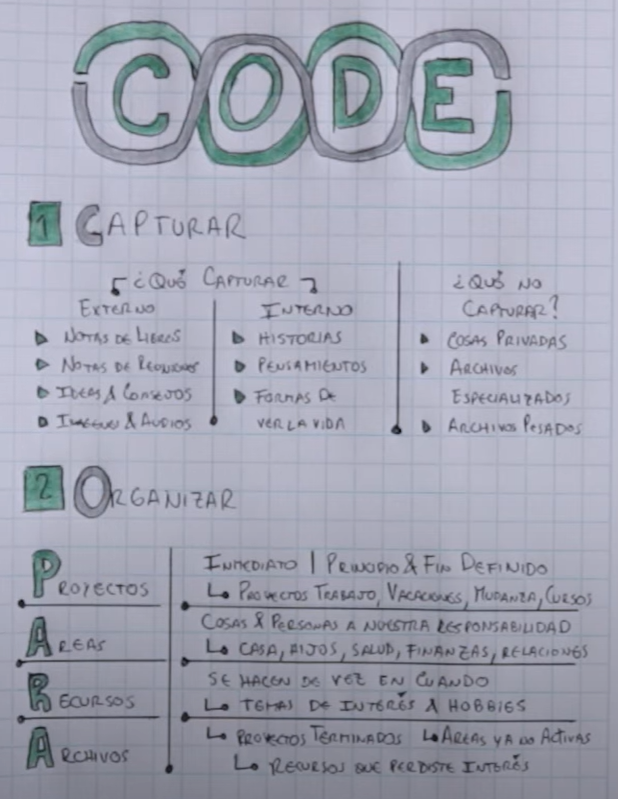 CODE
1 CAPTURAR
¿QUÉ CAPTURAR
EXTERNO
▶ NOTAS DE LIBROS
▶ NOTAS DE REUNIONES
▶ IDEAS & CONSEJOS
▶ IMAGENES & AUDIOS
INTERNO
▶ HISTORIAS
▶ PENSAMIENTOS
▶ FORMAS DE
VER LA VIDA
¿QUÉ NO
CAPTURAR?
▶ COSAS PRIVADAS
▶ ARCHIVOS
ESPECIALIZADOS
▶ ARCHIVOS PESADOS
2 ORGANIZAR
PROYECTOS
INMEDIATO | PRINCIPIO & FIN DEFINIDO
↳ PROYECTOS TRABAJO, VACACIONES, MUDANZA, CURSOS
AREAS
COSAS & PERSONAS A NUESTRA RESPONSABILIDAD
↳ CASA, HIJOS, SALUD, FINANZAS, RELACIONES
RECURSOS
SE HACEN DE VEZ EN CUANDO
↳ TEMAS DE INTERÉS & HOBBIES
ARCHIVOS
↳ PROYECTOS TERMINADOS ↳ AREAS YA NO ACTIVAS
↳ RECURSOS QUE PERDISTE INTERÉS